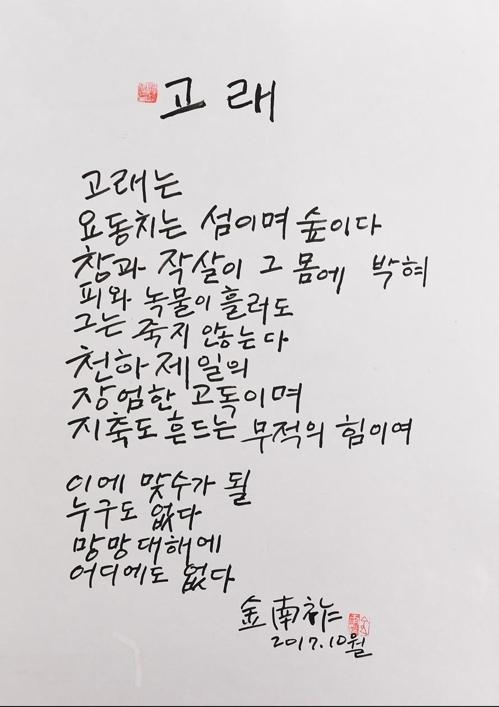 고래
고래는
요동치는 섬이며 숲이다
창과 작살이 그 몸에 박혀
피와 녹물이 흘러도
그는 죽지 않는다
천하제일의
장엄한 고독이며
지축도 흔드는 무적의 힘이여
이에 맞수가 될
누구도 없다
망망대해에
어디에도 없다
金南祚
2017.10월